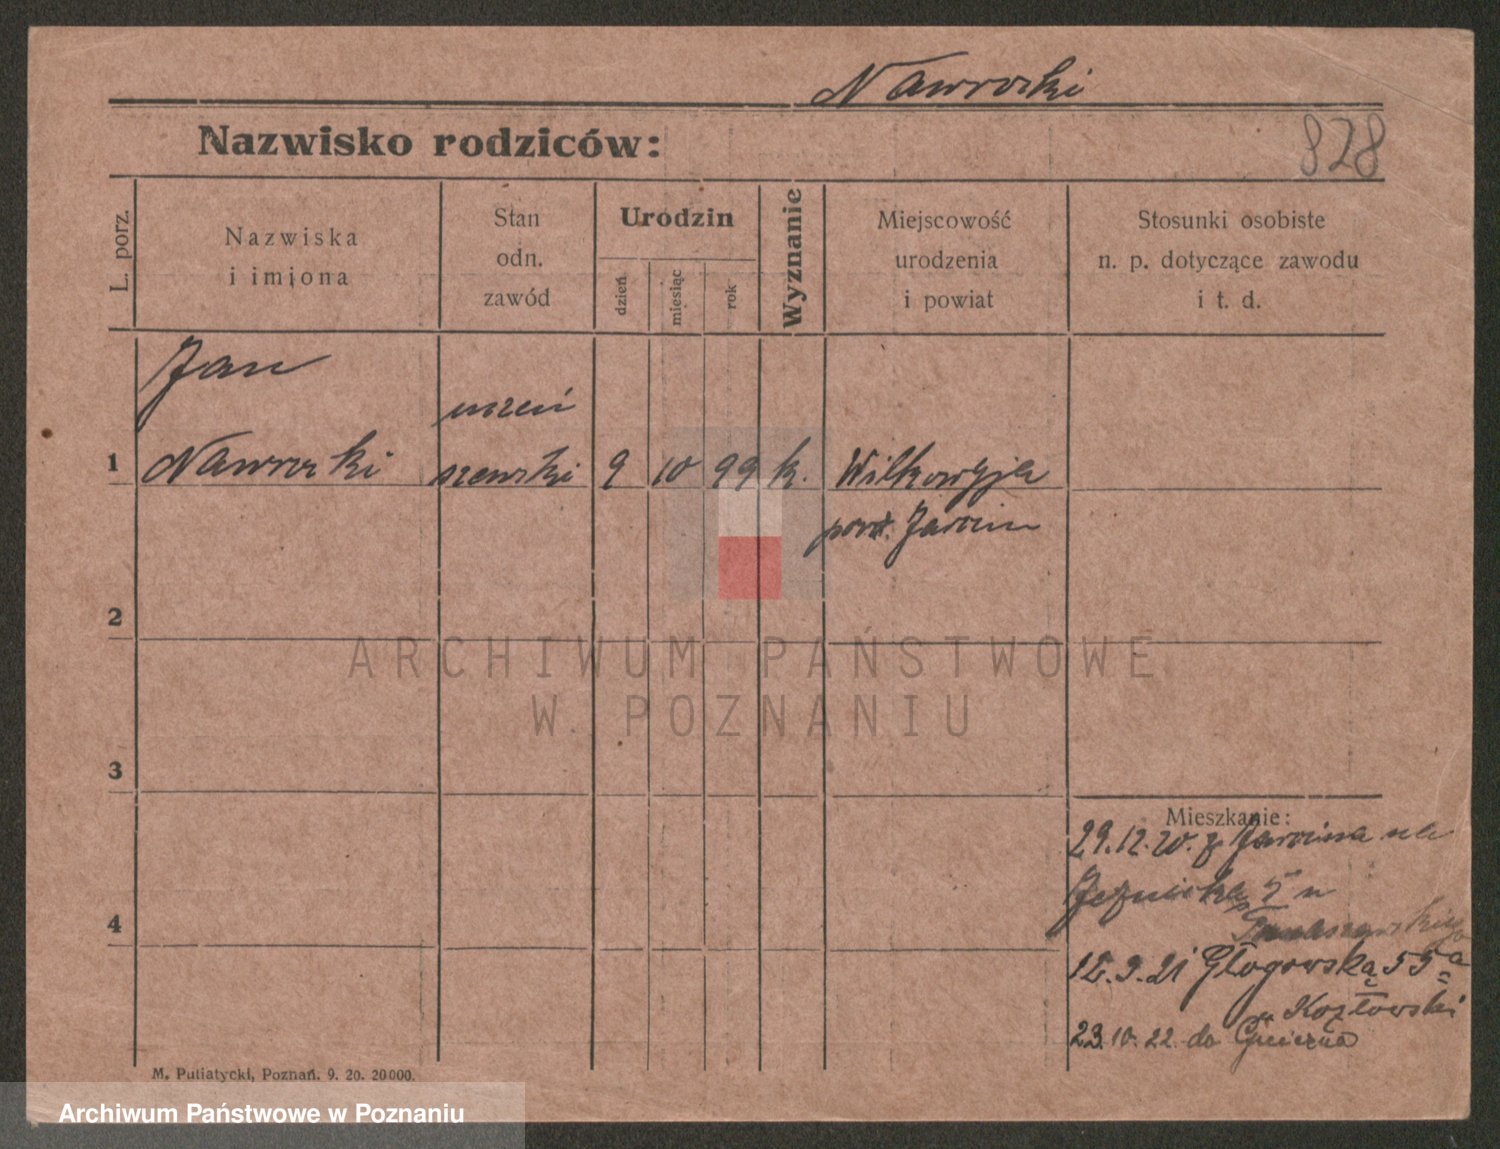 Nawrocki
Nazwisko rodziców:
828
L. porz.
Nazwiska
i imiona
Stan
odn.
zawód
Urodzin
dzień
miesiąc
rok
Wyznanie
Miejscowość
urodzenia
i powiat
Stosunki osobiste
n. p. dotyczące zawodu
i t. d.
Jan
uczeń
1 Nawrocki szewski 9 10 99 k. Wilkowyja
pow. Jarocin
2
ARCHIWUM PAŃSTWOWE
W POZNANIU
3
Mieszkanie:
29.12.20. z Jarocina na
Jezuicka 5 u
4
Tomaszewskiego
12.9.21 Głogowska 55a
u Kozłowski
23.10.22. do Gniezna
M. Putiatycki, Poznań. 9. 20. 20000.
Archiwum Państwowe w Poznaniu